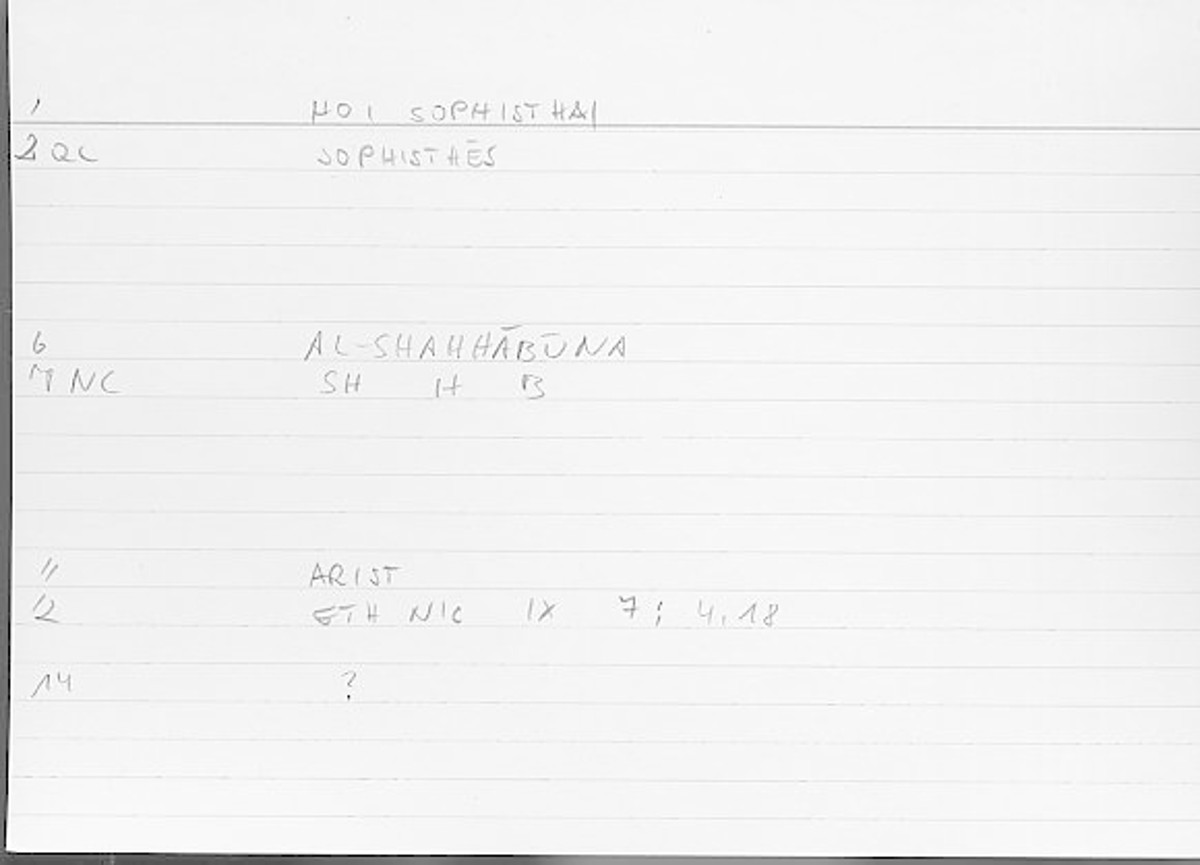 1 HOI SOPHISTHAI
2 QC SOPHISTHĒS
6 AL-SHAHHĀBŪNA
7 NC SH H B
11 ARIST
12 ETH NIC IX 7; 4.18
14 ?